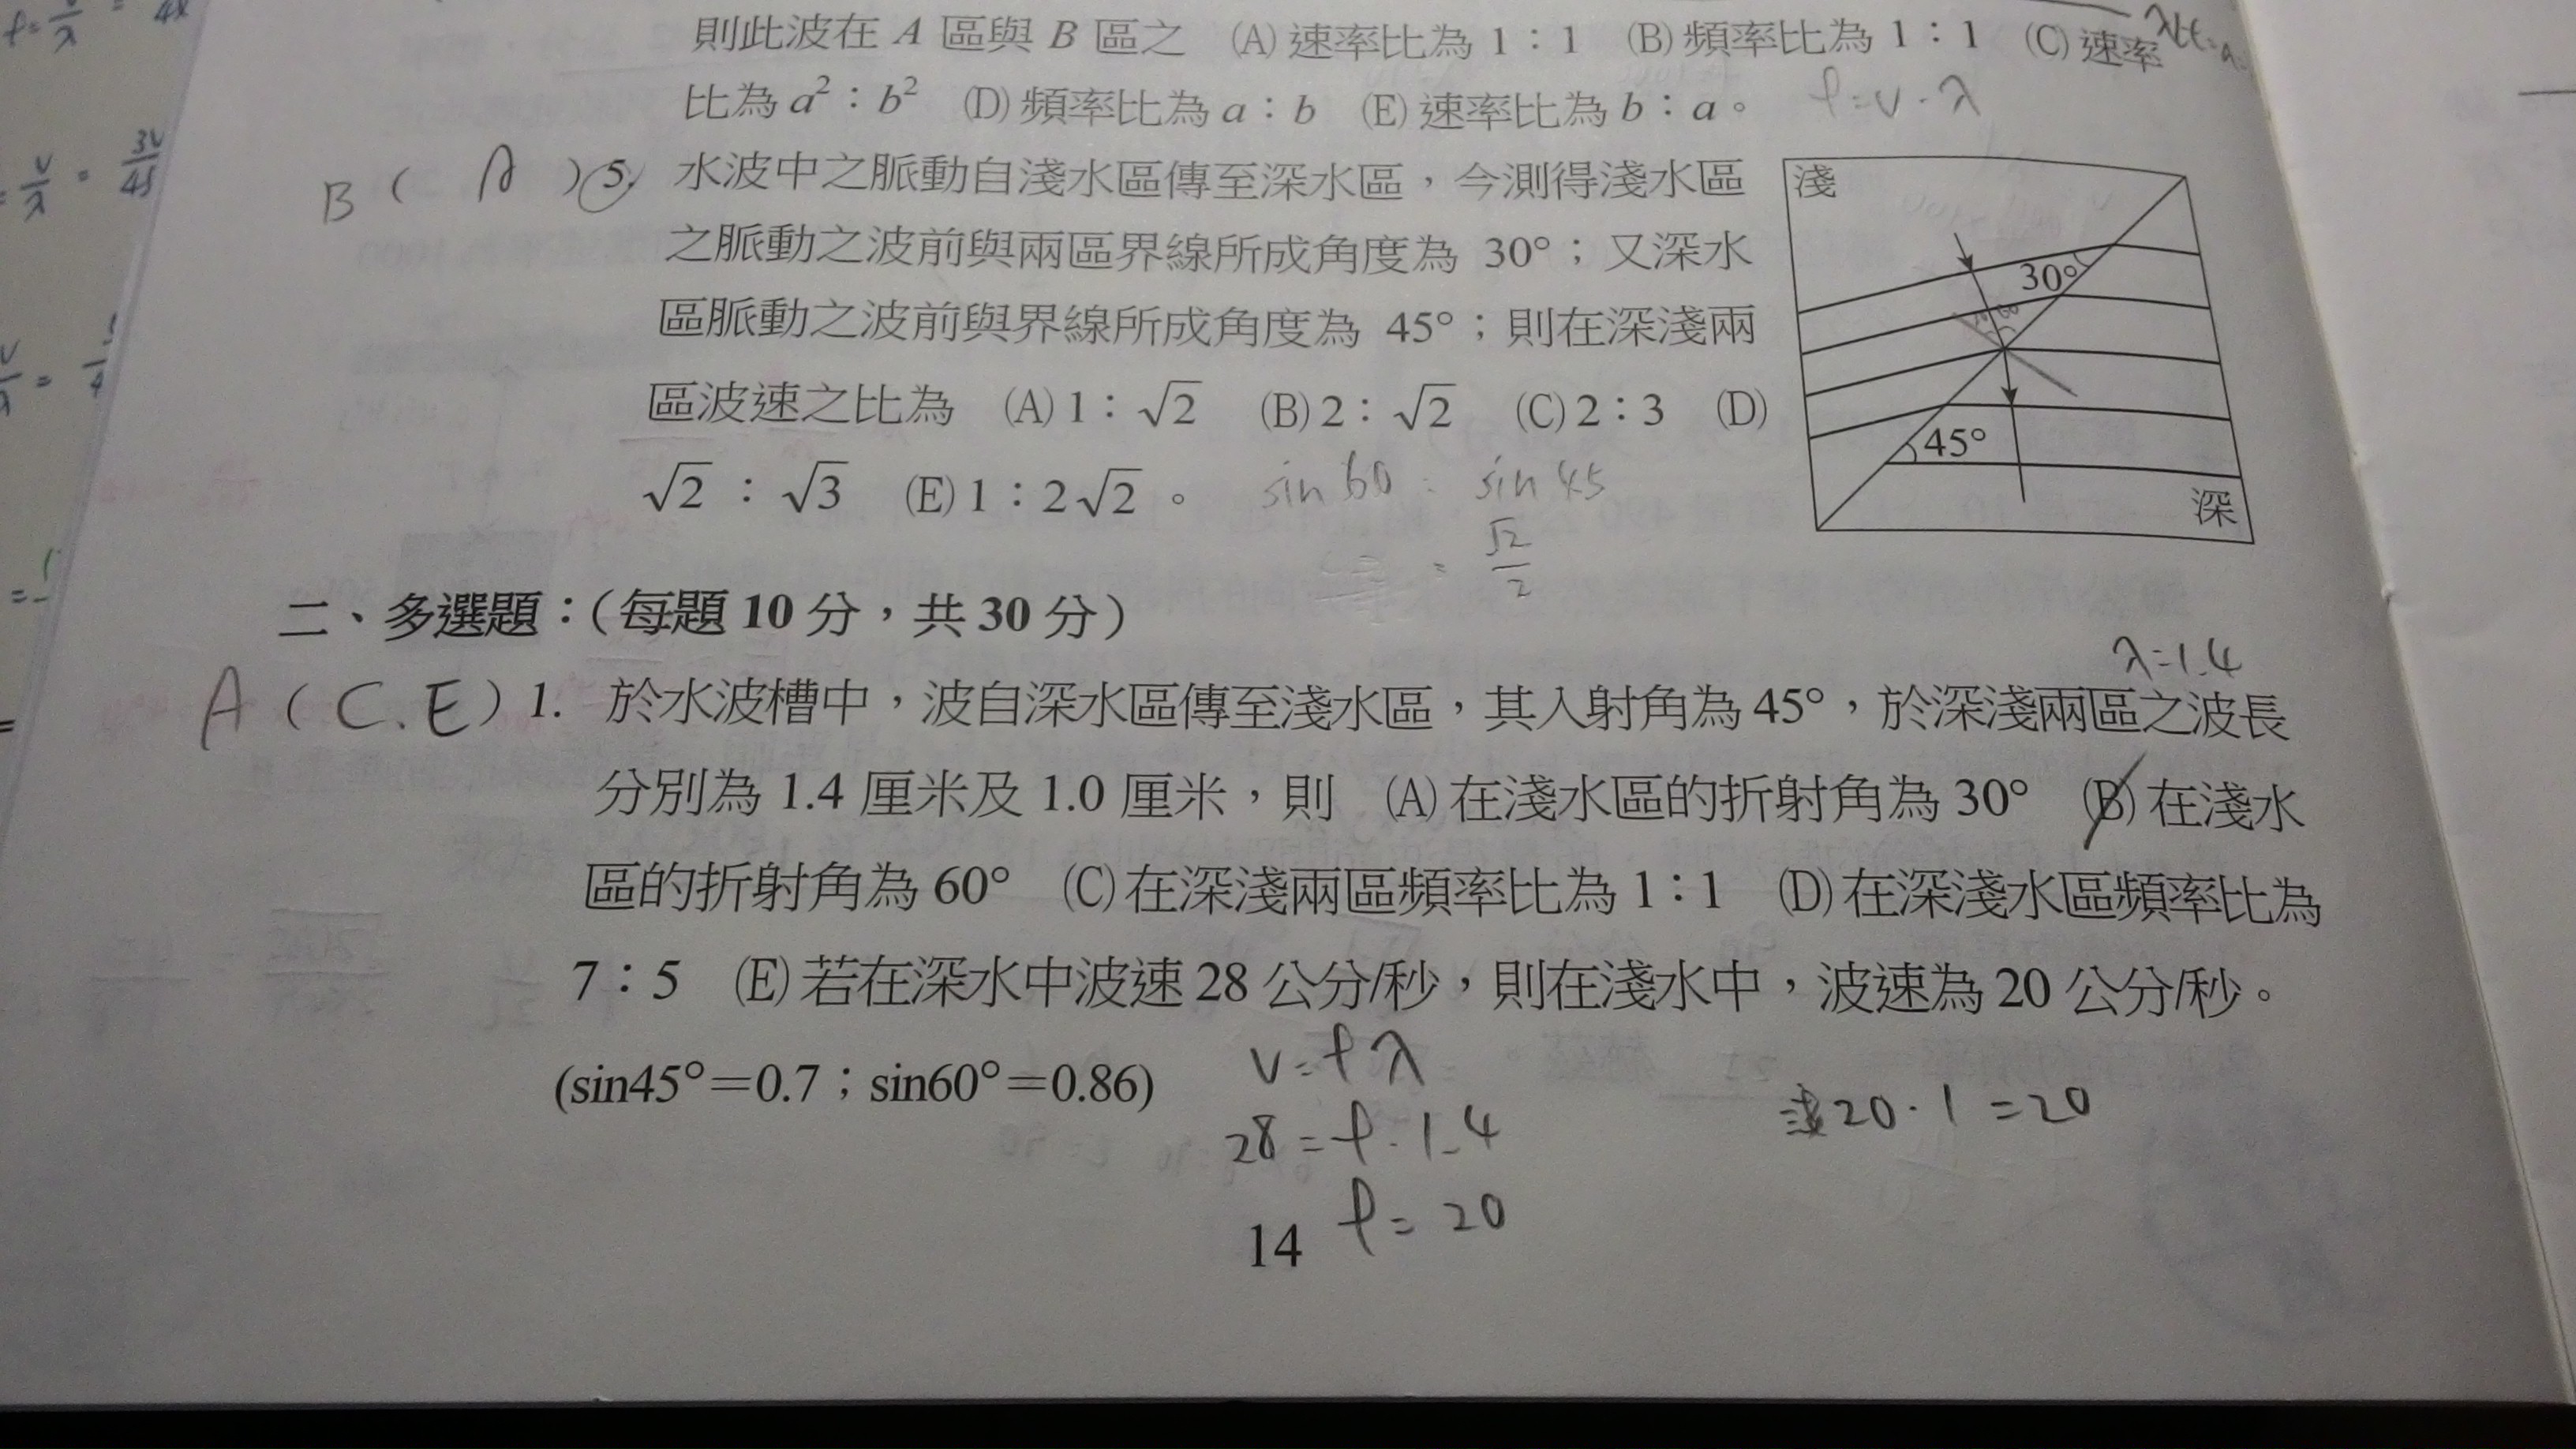 則此波在 A 區與 B 區之 (A) 速率比為 1:1 (B) 頻率比為 1:1 (C) 速率
比為 a²:b² (D) 頻率比為 a:b (E) 速率比為 b:a。 f=v·λ
B ( A ) 5. 水波中之脈動自淺水區傳至深水區,今測得淺水區
之脈動之波前與兩區界線所成角度為 30°;又深水
區脈動之波前與界線所成角度為 45°;則在深淺兩
區波速之比為 (A) 1:√2 (B) 2:√2 (C) 2:3 (D)
√2:√3 (E) 1:2√2。 sin 60 : sin 45
√2/2
淺
30°
45°
深
二、多選題:(每題 10 分,共 30 分)
λ=1.4
A ( C.E ) 1. 於水波槽中,波自深水區傳至淺水區,其入射角為 45°,於深淺兩區之波長
分別為 1.4 厘米及 1.0 厘米,則 (A) 在淺水區的折射角為 30° (B) 在淺水
區的折射角為 60° (C) 在深淺兩區頻率比為 1:1 (D) 在深淺水區頻率比為
7:5 (E) 若在深水中波速 28 公分/秒,則在淺水中,波速為 20 公分/秒。
(sin45°=0.7;sin60°=0.86)
v=fλ
28=f·1.4
f=20
淺20·1=20
14